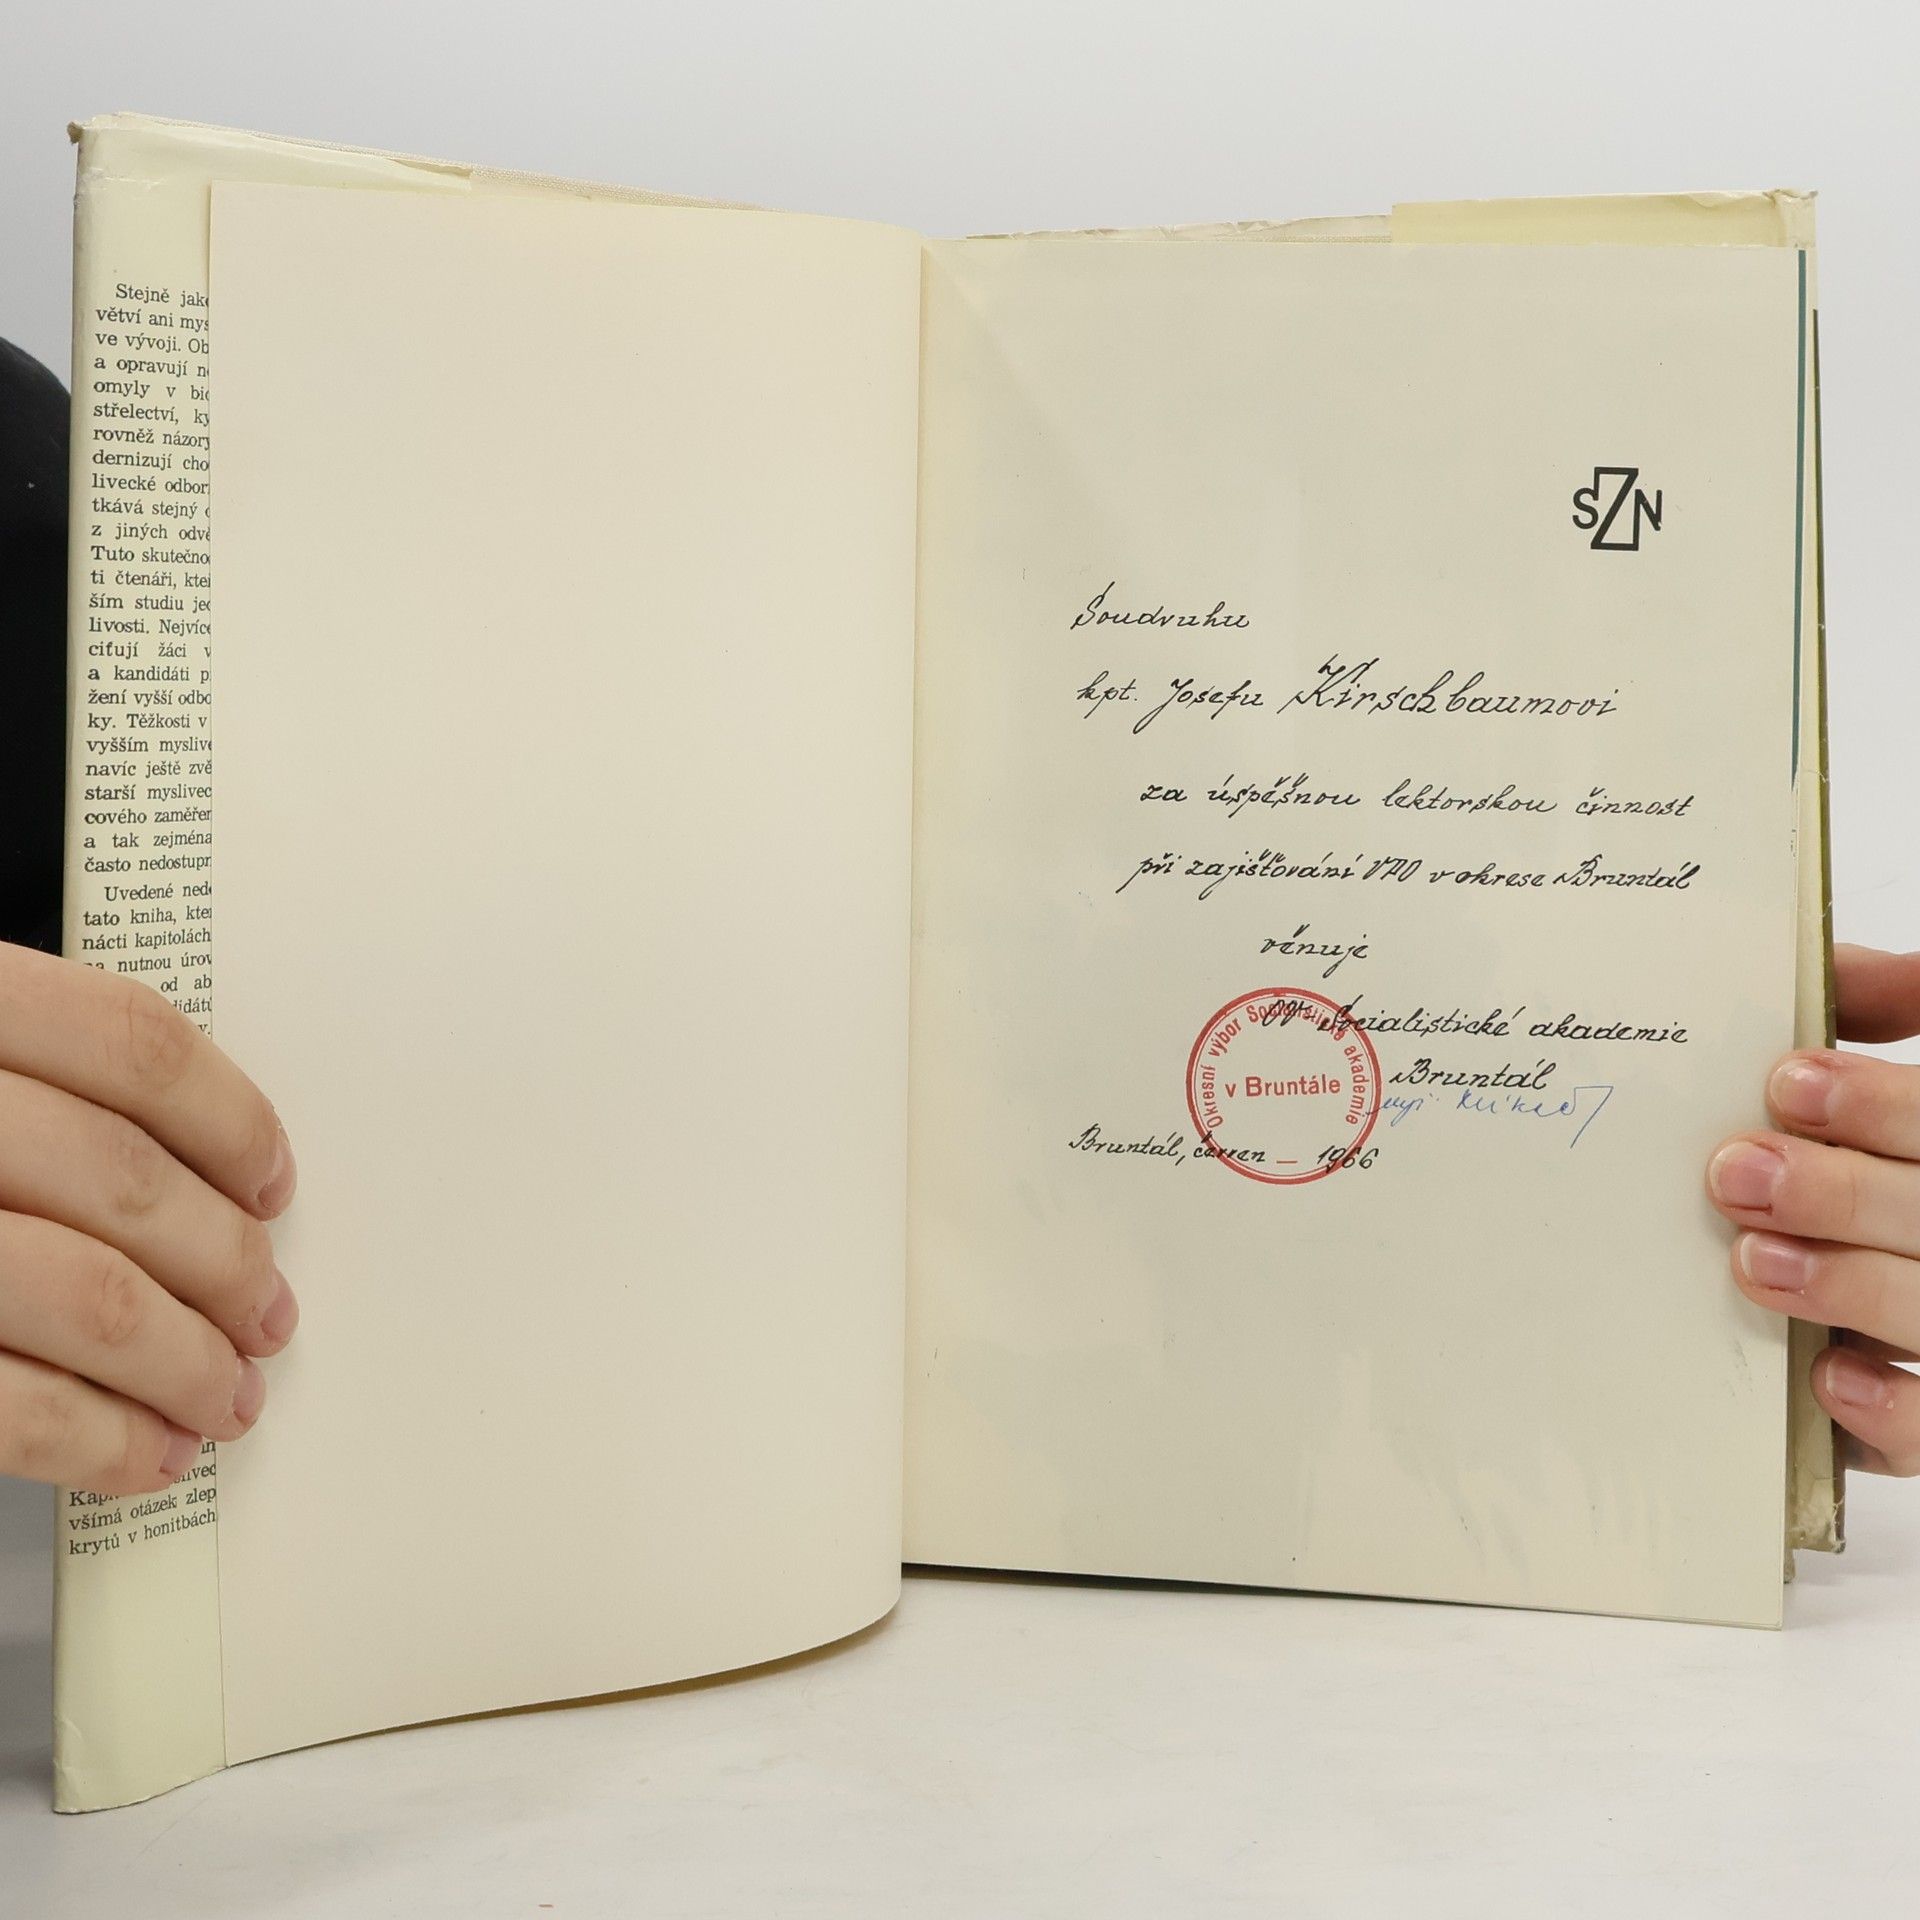 Stejně jak
větví ani mys
ve vývoji. Ob
a opravují n
omyly v bio
střelectví, ky
rovněž názory
dernizují cho
livecké odbor
tkává stejný
z jiných odvě
Tuto skutečno
ti čtenáři, kteř
ším studiu jed
livosti. Nejvíce
ciťují žáci v
a kandidáti p
žení vyšší odbo
ky. Těžkosti v
vyšším myslive
navíc ještě zvě
starší myslivec
cového zaměřen
a tak zejména
často nedostupn
Uvedené nedo
tato kniha, kter
nácti kapitolách
na nutnou úrov
od ab
didátů
v.
in
slivec
Kap
všímá otázek zlep
krytů v honitbách
SZN
Soudruhu
kpt. Josefu Kirschbaumovi
za úspěšnou lektorskou činnost
při zajišťování VPO v okrese Bruntál
věnuje
OV Socialistické akademie
Bruntál
Okresní výbor Socialistické akademie
v Bruntále
Bruntál, červen 1966